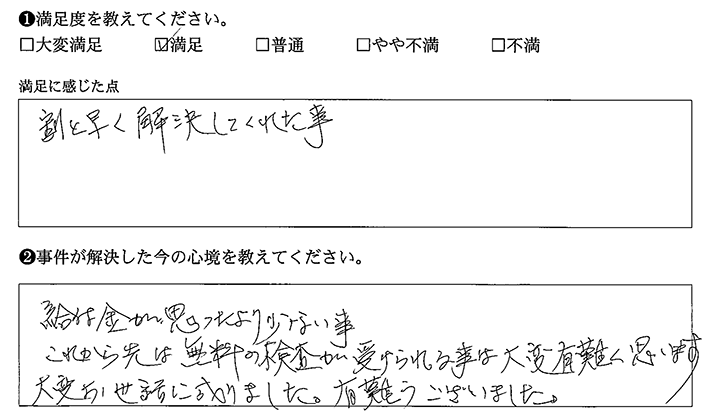 ❶満足度を教えてください。
□大変満足 ☑満足 □普通 □やや不満 □不満
満足に感じた点
割と早く解決してくれた事
❷事件が解決した今の心境を教えてください。
給付金が思ったより少ない事
これから先は無料の検査が受けられる事は大変有難く思います
大変お世話に成りました。有難うございました。